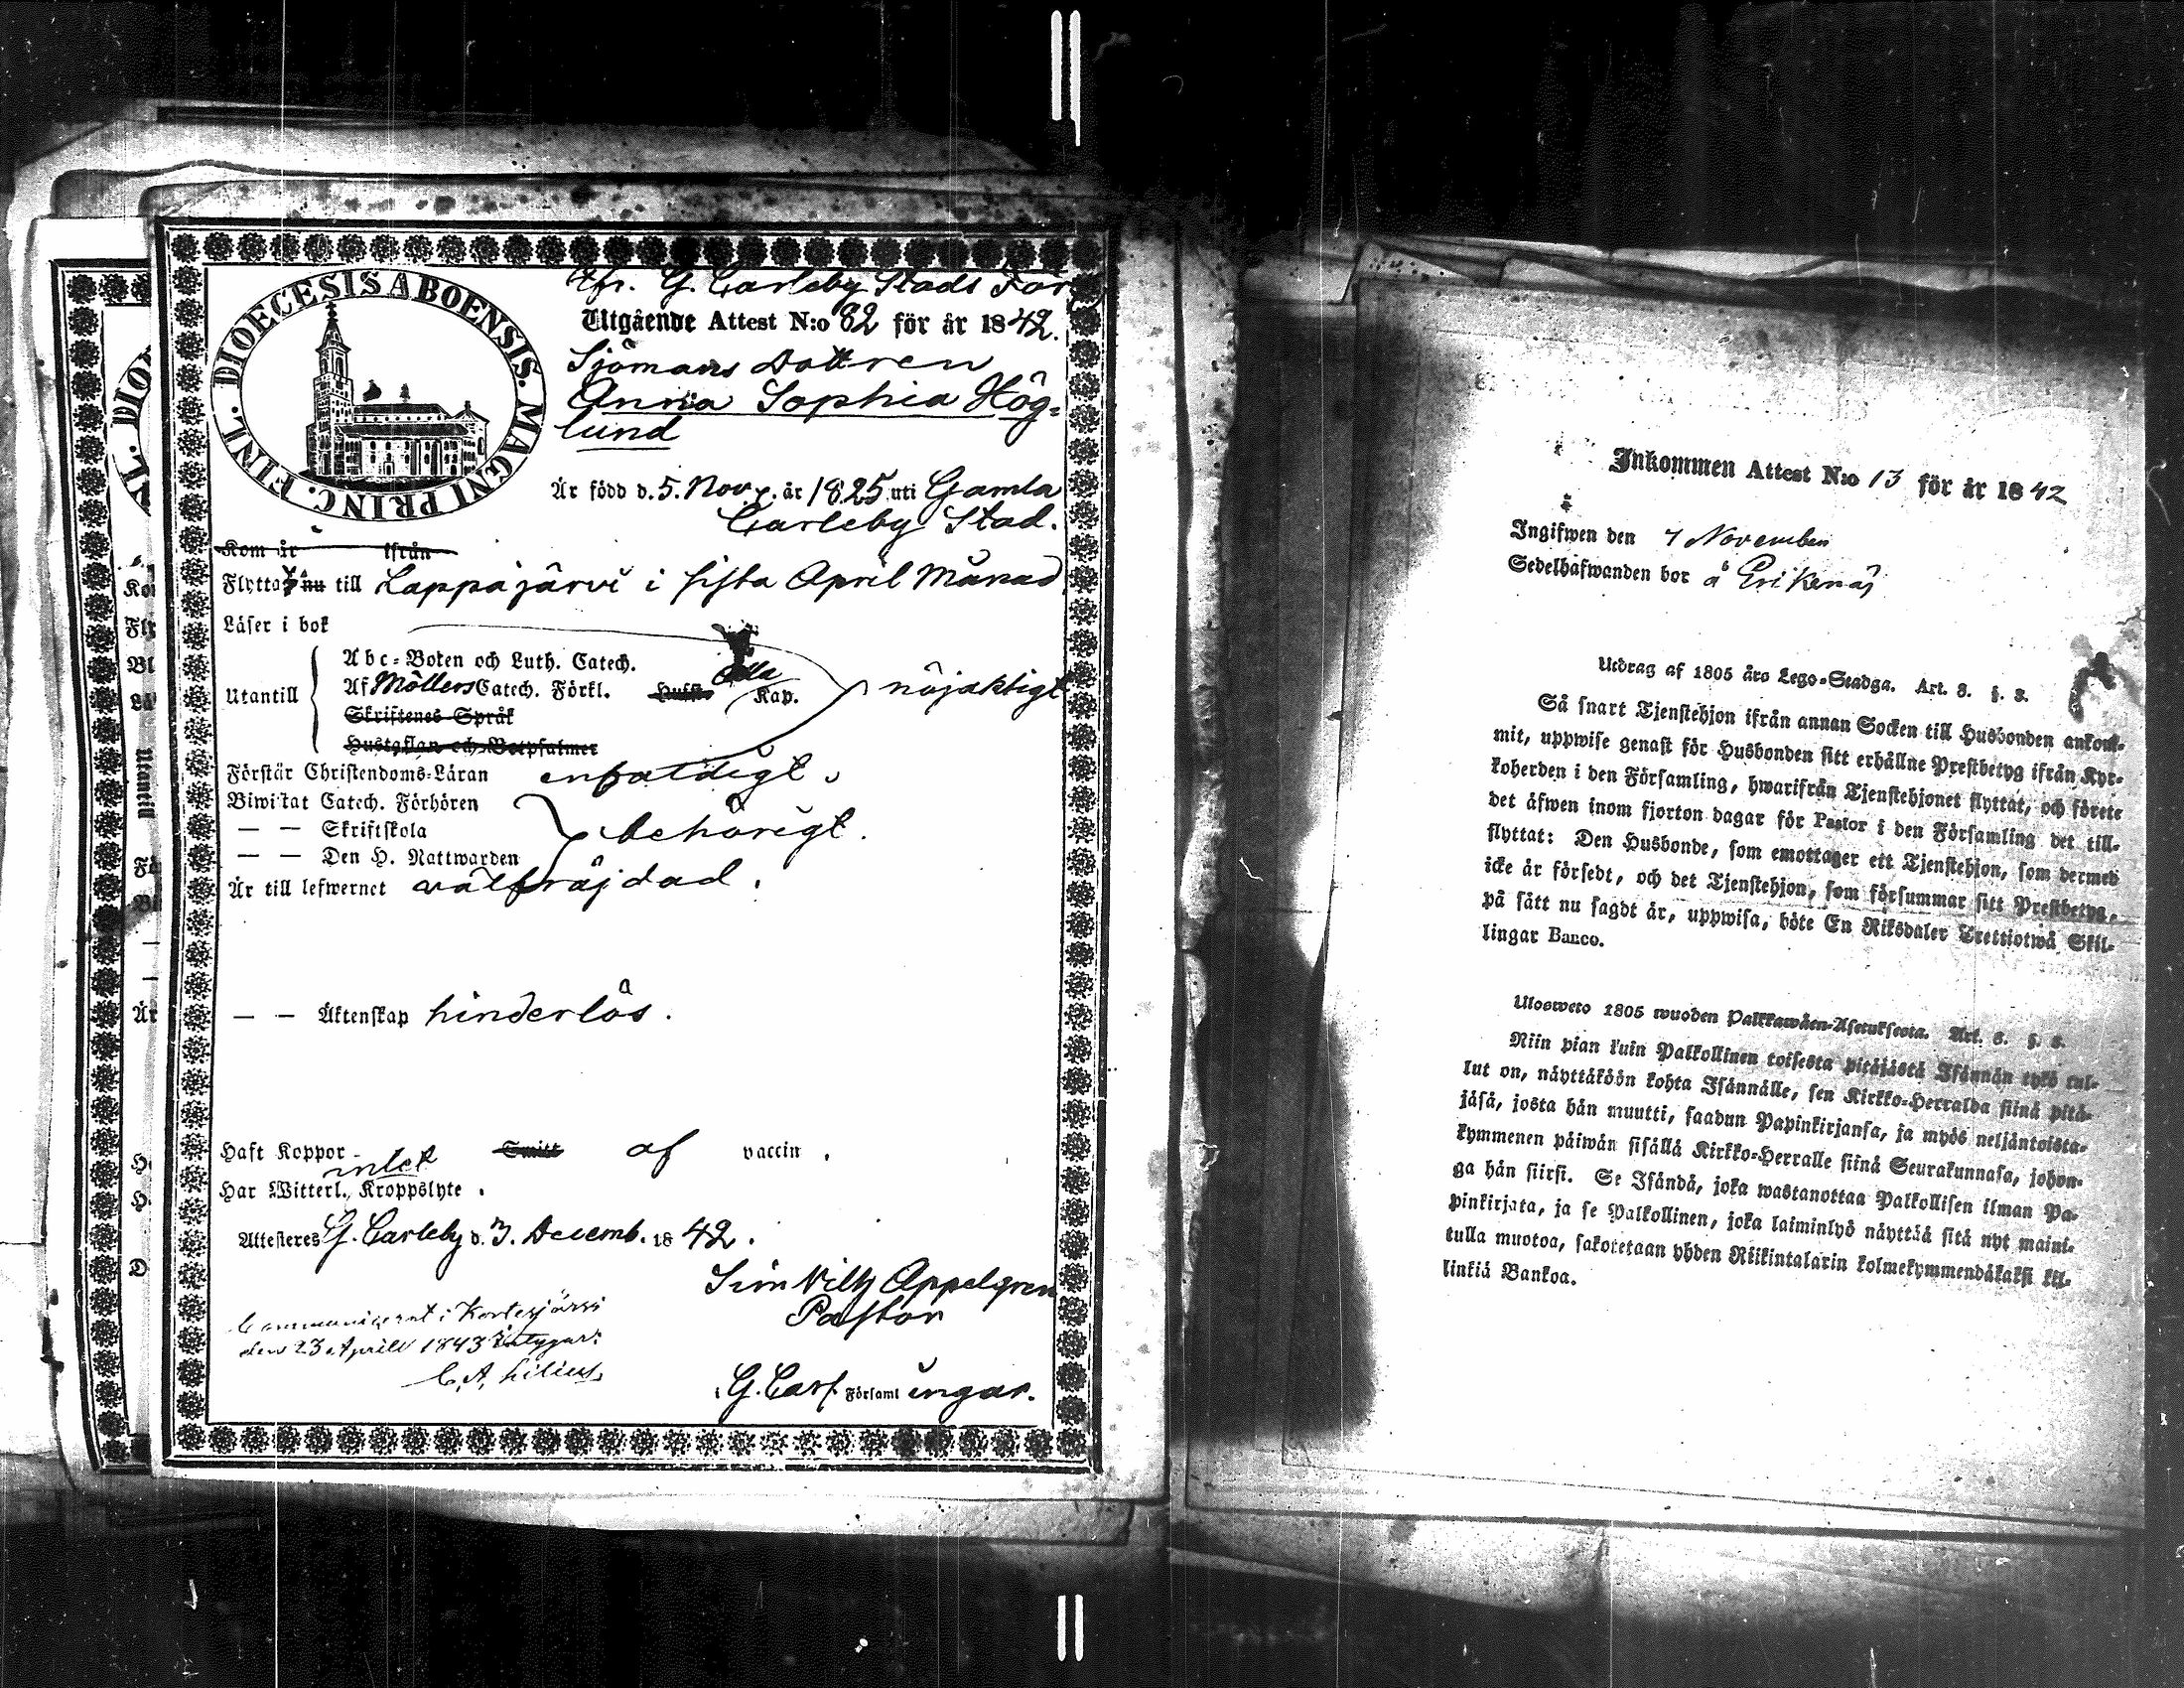 DIOECESIS ABOENSIS. MAGNI PRINC. FINL.
Utfr. G. Carleby Stads Förs
Utgående Attest N:o 82 för år 1842.
Sjömans Dottren
Anna Sophia Hög-
lund
Är född d. 5. Nov. år 1825 uti Gamla
Carleby Stad.
Kom år ifrån
Flyttar nu till Lappajärvi i sista April Månad
Läser i bok
Utantill
Abc-Boken och Luth. Catech.
Af Möllers Catech. Förkl. Alla Kap. nöjaktigt
Skriftenes Språk
Hustaflan och Botpsalmer
Förstår Christendoms-Läran enfaldigt.
Biwistat Catech. Förhören
— — Skriftskola behörigt.
— — Den H. Nattwarden
Är till lefwernet wälfräjdad.
— — Äktenskap hinderlös.
Haft Koppor Smitt af vaccin.
intet
Har Witterl. Kroppslyte.
Attesteras G. Carleby d. 3. Decemb. 1842.
Sim Wilh Appelgren
Pastor
i G. Carl. Församl ingar.
Communicerat i Kortesjärvi
den 23 Aprill 1843 intygar:
C. A. Lilius
Inkommen Attest N:o 13 för år 1842
Ingifwen den 7 November
Sedelhafwanden bor å Erikenäs
Utdrag af 1805 års Lego-Stadga. Art. 8. §. 8.
Så snart Tjenstehjon ifrån annan Socken till Husbonden ankom-
mit, uppwise genast för Husbonden sitt erhållne Prestbetyg ifrån Kyr-
koherden i den Församling, hwarifrån Tjenstehjonet flyttat, och förete
det äfwen inom fjorton dagar för Pastor i den Församling det till-
flyttat: Den Husbonde, som emottager ett Tjenstehjon, som dermed
icke är försedt, och det Tjenstehjon, som försummar sitt Prestbetyg,
på sätt nu sagdt är, uppwisa, böte En Riksdaler Trettiotwå Skil-
lingar Banco.
Ulosweto 1805 wuoden Palkkawäen-Asetuksesta. Art. 8. §. 8.
Niin pian kuin Palkollinen toisesta pitäjästä Isännän tykö tul-
lut on, näyttäköön kohta Isännälle, sen Kirkko-Herralda siinä pitä-
jäsä, josta hän muutti, saadun Papinkirjansa, ja myös neljäntoista-
kymmenen päiwän sisällä Kirkko-Herralle siinä Seurakunnasa, johon-
ga hän siirsi. Se Isändä, joka wastanottaa Palkollisen ilman Pa-
pinkirjata, ja se Palkollinen, joka laiminlyö näyttää sitä nyt maini-
tulla muotoa, sakotetaan yhden Riikintalarin kolmekymmendäkaksi kil-
linkiä Bankoa.